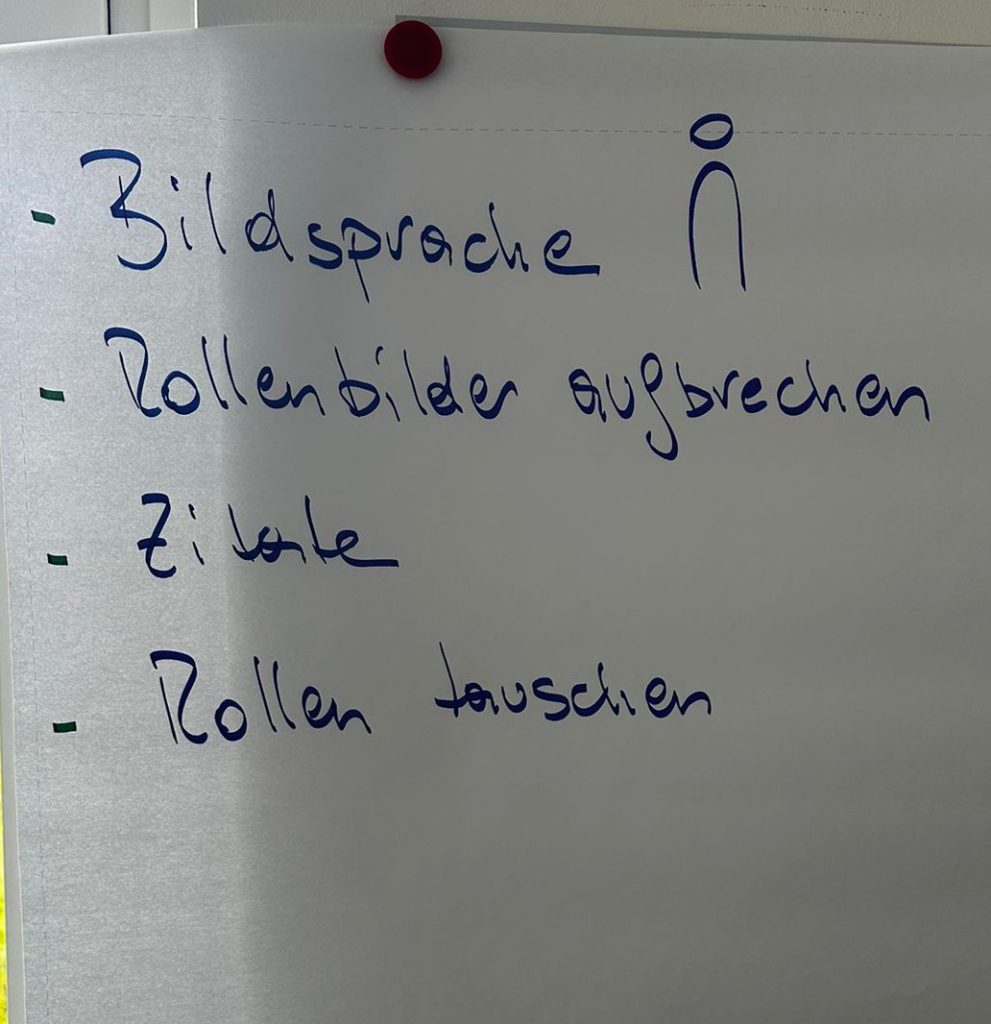 - Bildsprache
- Rollenbilder aufbrechen
- Zitate
- Rollen tauschen